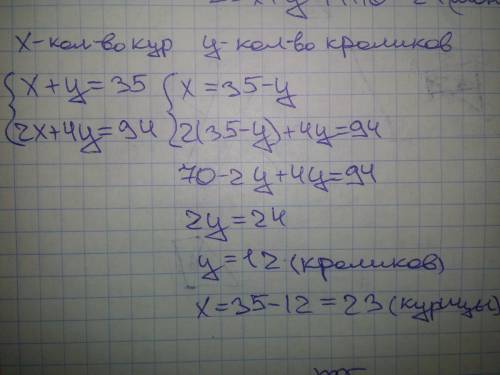 x-кол-во кур y-кол-во кроликов
{x+y=35 {x=35-y
{2x+4y=94 {2(35-y)+4y=94
70-2y+4y=94
2y=24
y=12 (кроликов)
x=35-12=23 (курицы)